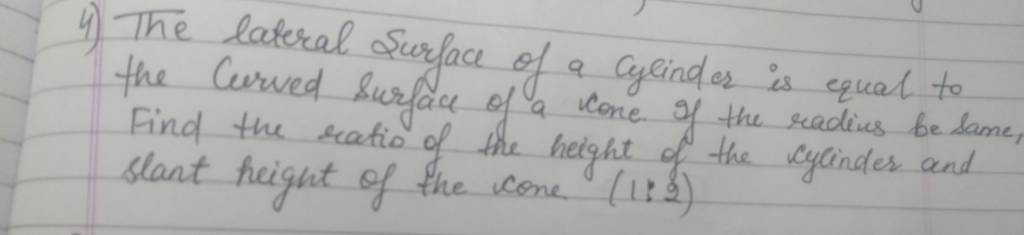 4) The lateral Surface of a Cylinder is equal to
the Curved Surface of a cone If the radius be Same,
Find the ratio of the height of the cylinder and
slant height of the cone (1:2)